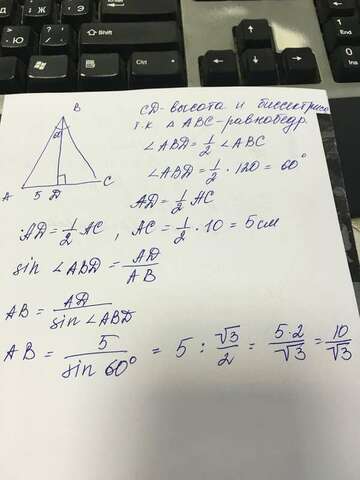 Ю
Э
Ж
Shift
B
α
A
5
D
C
CD-высота и биссектриса
т.к Δ ABC-равнобедр
∠ABD = 1/2 ∠ABC
∠ABD = 1/2 · 120 = 60°
AD = 1/2 AC
AD = 1/2 AC , AC = 1/2 · 10 = 5см
sin ∠ABD = AD/AB
AB = AD/sin∠ABD
AB = 5/sin 60° = 5 : √3/2 = 5·2/√3 = 10/√3